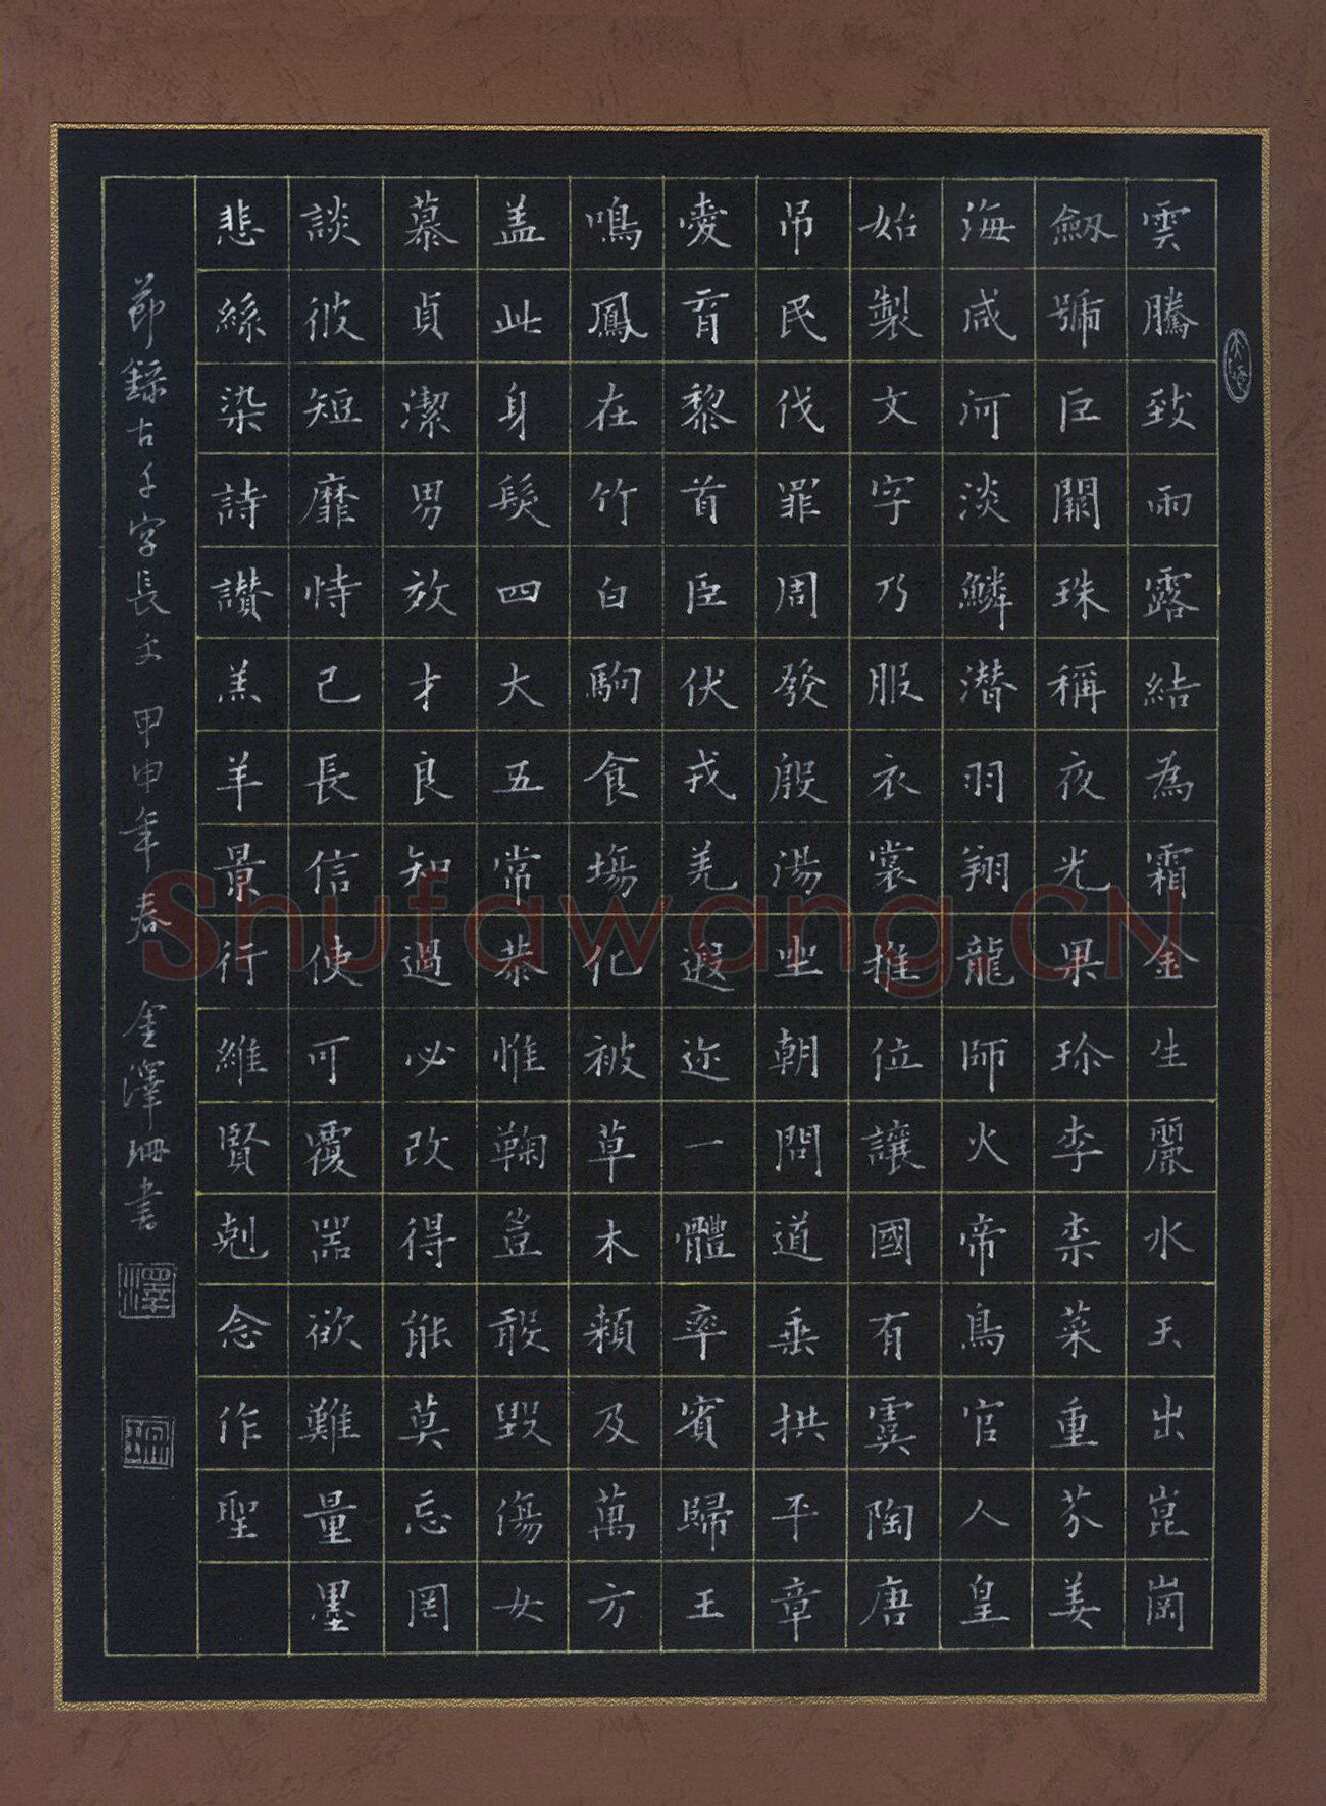 雲騰致雨露結為霜金生麗水玉出崑崗
劔號巨闕珠稱夜光果珍李柰菜重芥姜
海咸河淡鱗潜羽翔龍師火帝鳥官人皇
始製文字乃服衣裳推位讓國有虞陶唐
吊民伐罪周發殷湯坐朝問道垂拱平章
愛育黎首臣伏戎羌遐迩一體率賓歸王
鳴鳳在竹白駒食場化被草木賴及萬方
盖此身髮四大五常恭惟鞠豈敢毀傷女
慕貞潔男效才良知過必改得能莫忘罔
談彼短靡恃己長信使可覆器欲難量墨
悲絲染詩讚羔羊景行維賢剋念作聖
節錄古千字長文 甲申年春 金澤珊書
澤
珊
Shufawang.CN